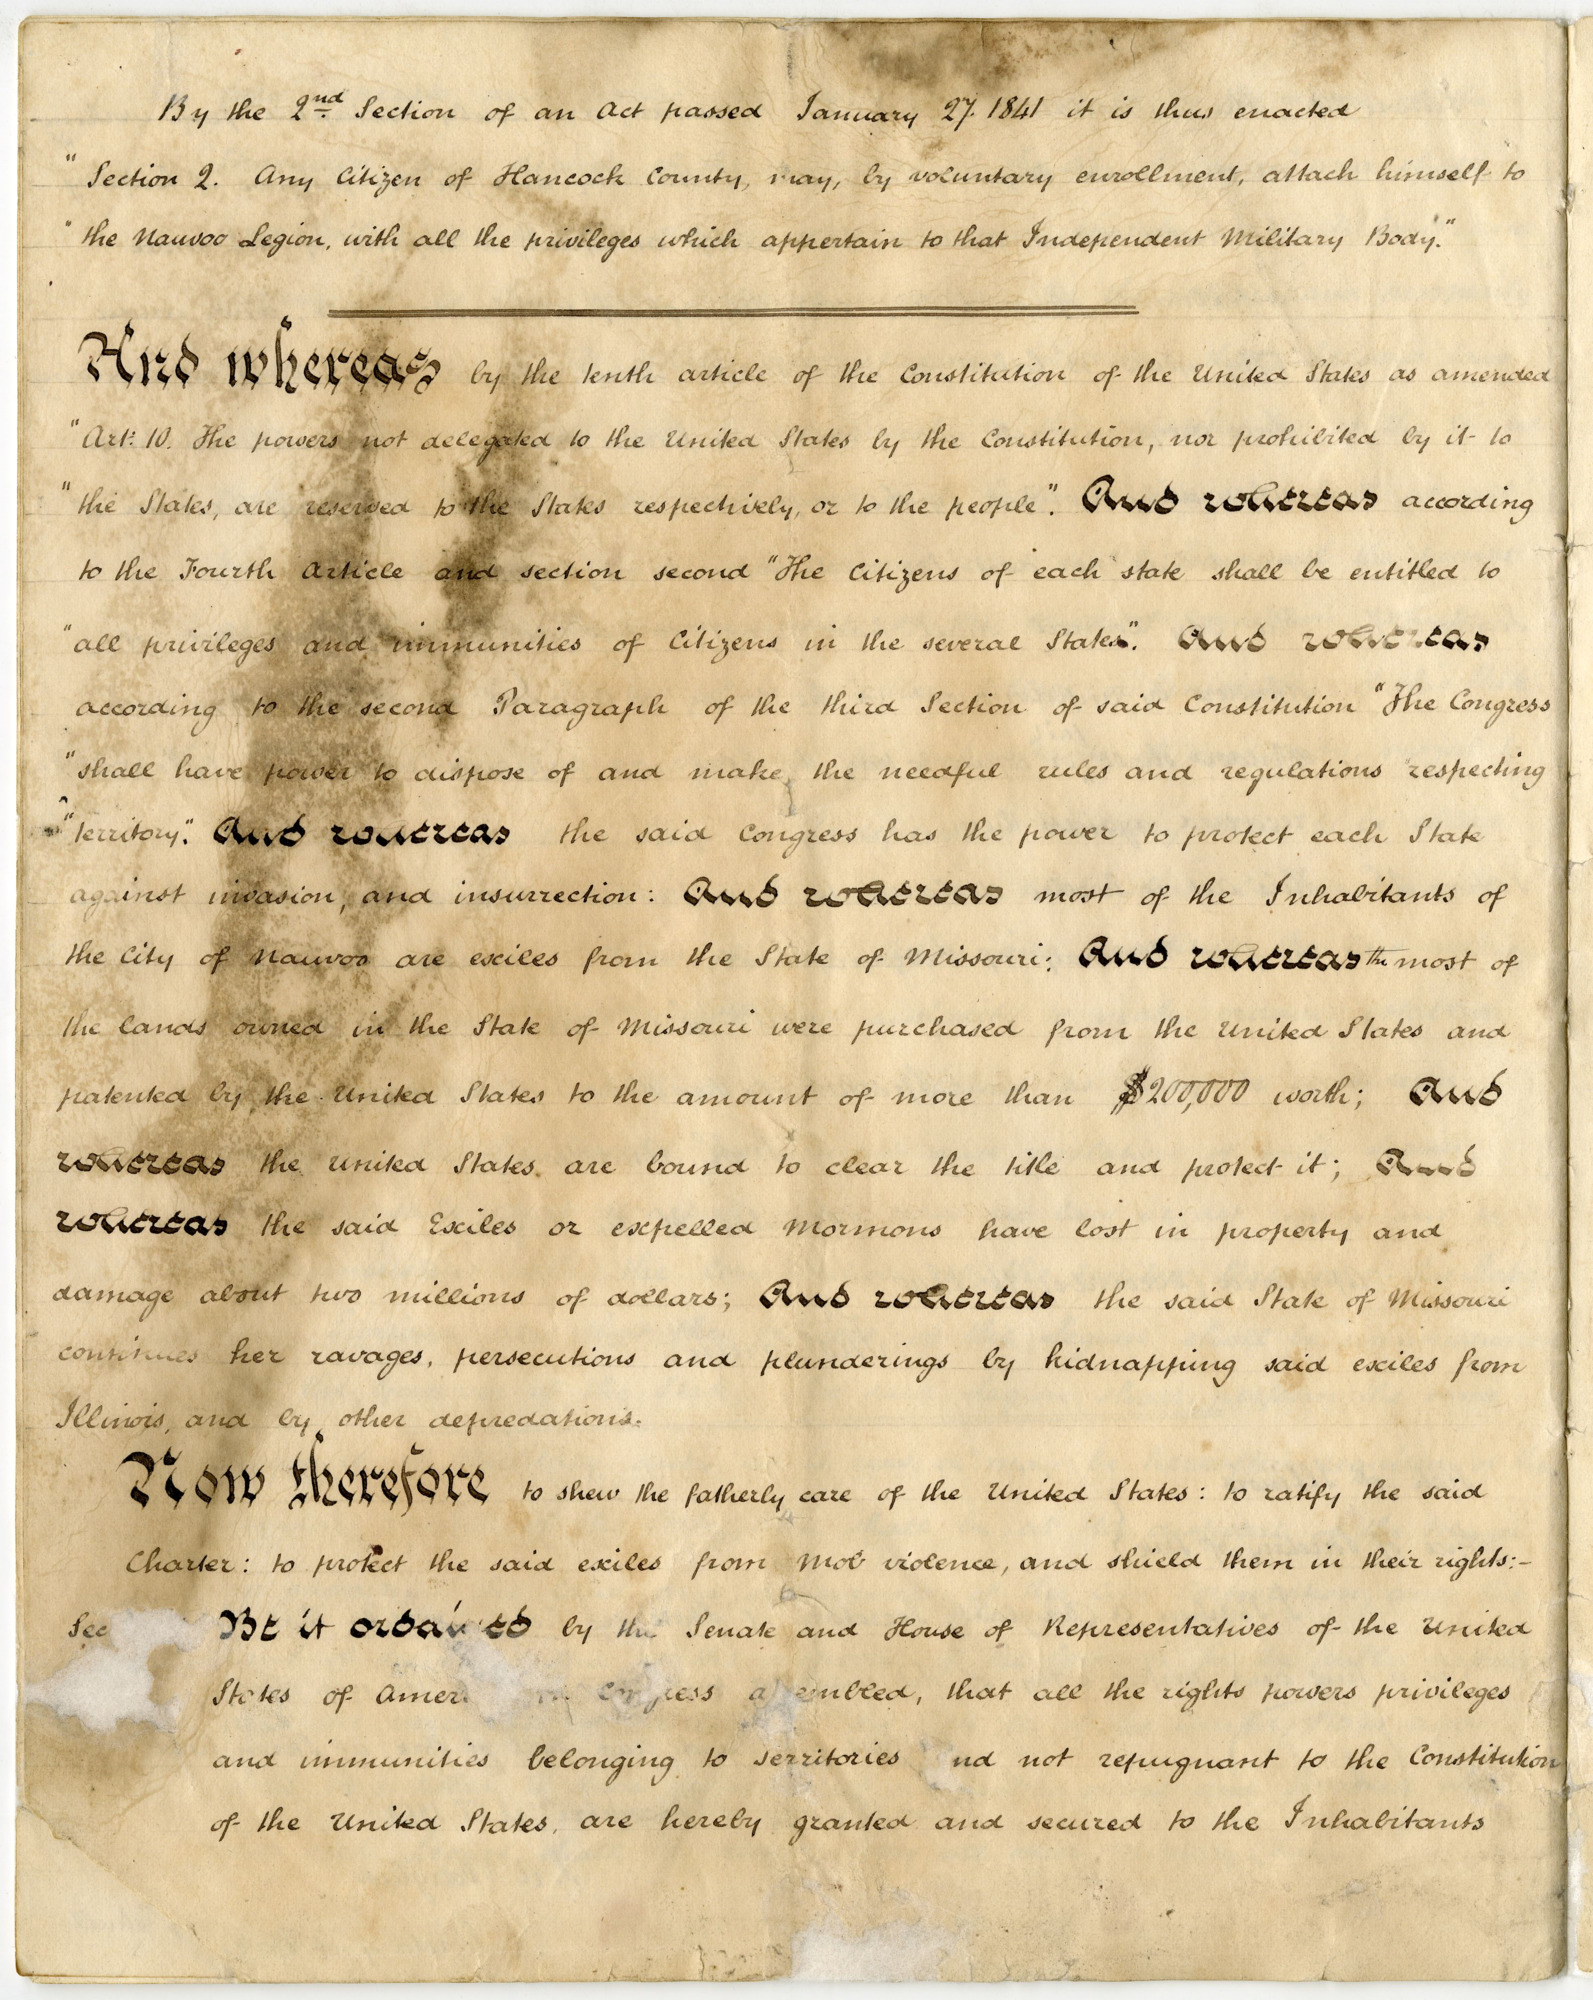 By the 2nd Section of an Act passed January 27. 1841 it is thus enacted
"Section 2. Any Citizen of Hancock County, may, by voluntary enrollment, attach himself to
"the Nauvoo Legion, with all the privileges which appertain to that Independent Military Body."
And whereas by the tenth article of the Constitution of the United States as amended
"Art: 10. The powers not delegated to the United States by the Constitution, nor prohibited by it to
"the States, are reserved to the States respectively, or to the people". And whereas according
to the Fourth Article and section second "The Citizens of each state shall be entitled to
"all privileges and immunities of Citizens in the several States". And whereas
according to the second Paragraph of the third Section of said Constitution "The Congress
"shall have power to dispose of and make the needful rules and regulations respecting
"territory". And whereas the said Congress has the power to protect each State
against invasion, and insurrection: And whereas most of the Inhabitants of
the City of Nauvoo are exiles from the State of Missouri: And whereas the most of
the lands owned in the State of Missouri were purchased from the United States and
patented by the United States to the amount of more than $200,000 worth; And
whereas the United States are bound to clear the title and protect it; And
whereas the said Exiles or expelled Mormons have lost in property and
damage about two millions of dollars; And whereas the said State of Missouri
continues her ravages, persecutions and plunderings by kidnapping said exiles from
Illinois, and by other depredations.
Now therefore to shew the fatherly care of the United States: to ratify the said
Charter: to protect the said exiles from Mob violence, and shield them in their rights:—
Sec Be it ordained by the Senate and House of Representatives of the United
States of Amer in Congress a embled, that all the rights powers privileges
and immunities belonging to territories nd not repugnant to the Constitution
of the United States, are hereby granted and secured to the Inhabitants